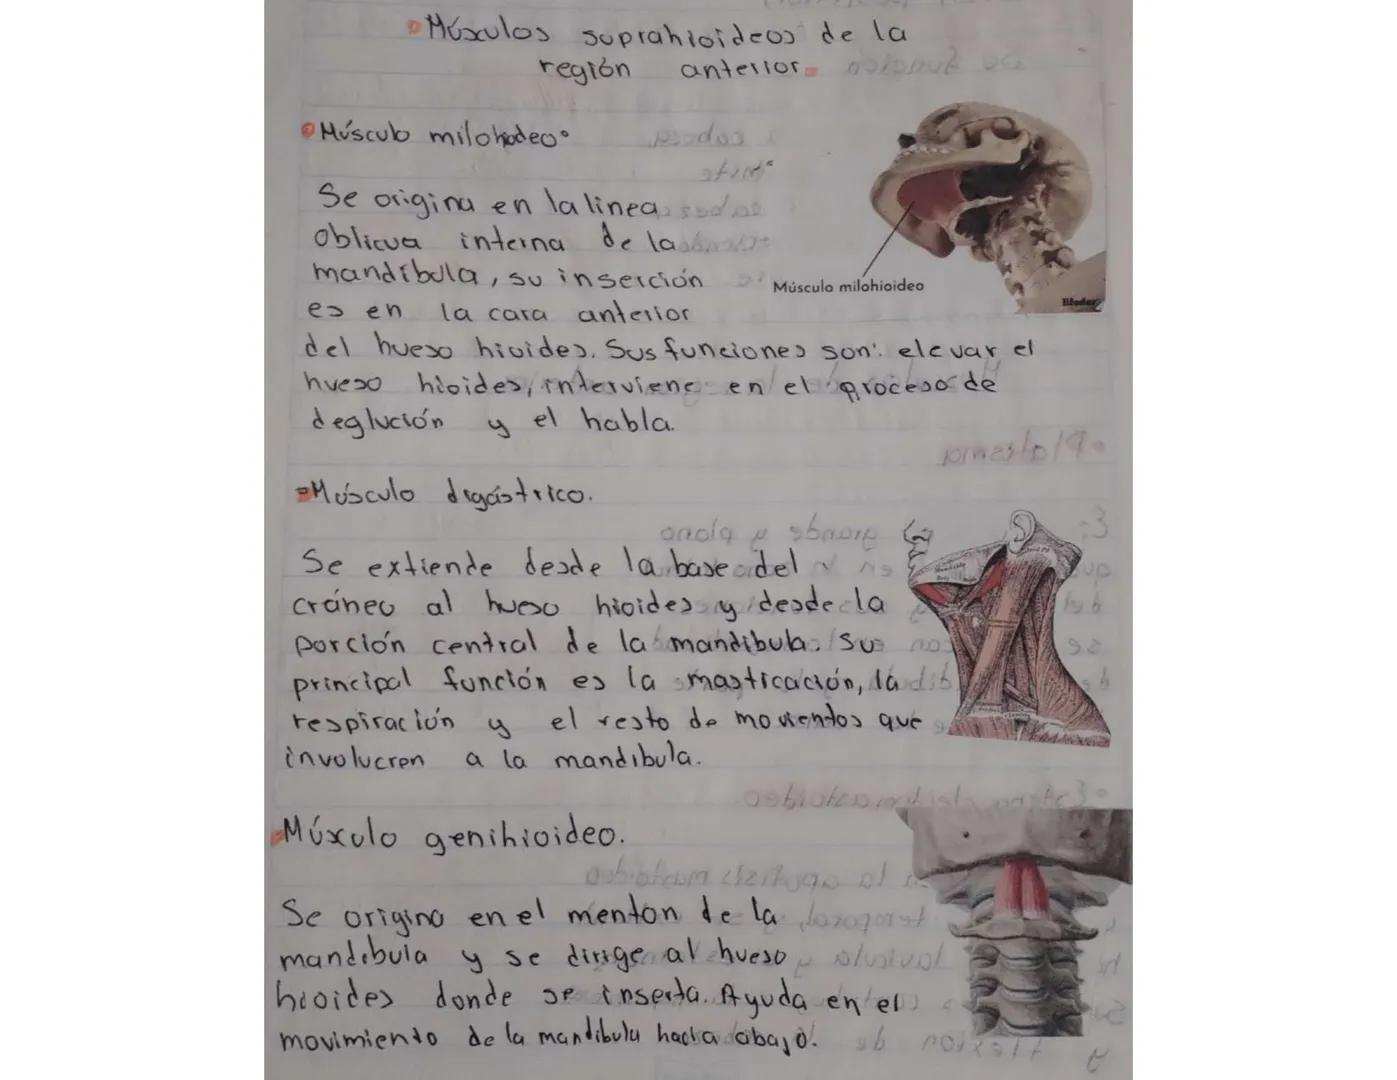 Músculos suprahioideos de la
región anterior.
Músculo milohiodeo.
Se origina en la linea
oblicua interna de la
mandíbula, su inserción
es en la cara anterior
del hueso hioides. Sus funciones son: elevar el
hueso hioides, interviene en el proceso de
deglución y el habla.
Músculo milohioideo
Músculo digástrico.
Se extiende desde la base del
cráneo al hueso hioides y desde la
porción central de la mandibula. Su
principal función es la masticación, la
respiración y el resto de movientos que
involucren a la mandibula.
Múxulo genihioideo.
Se origina en el menton de la
mandibula y se dirige al hueso
hioides donde se inserta. Ayuda en el
movimiento de la mandibula hacia abajo.